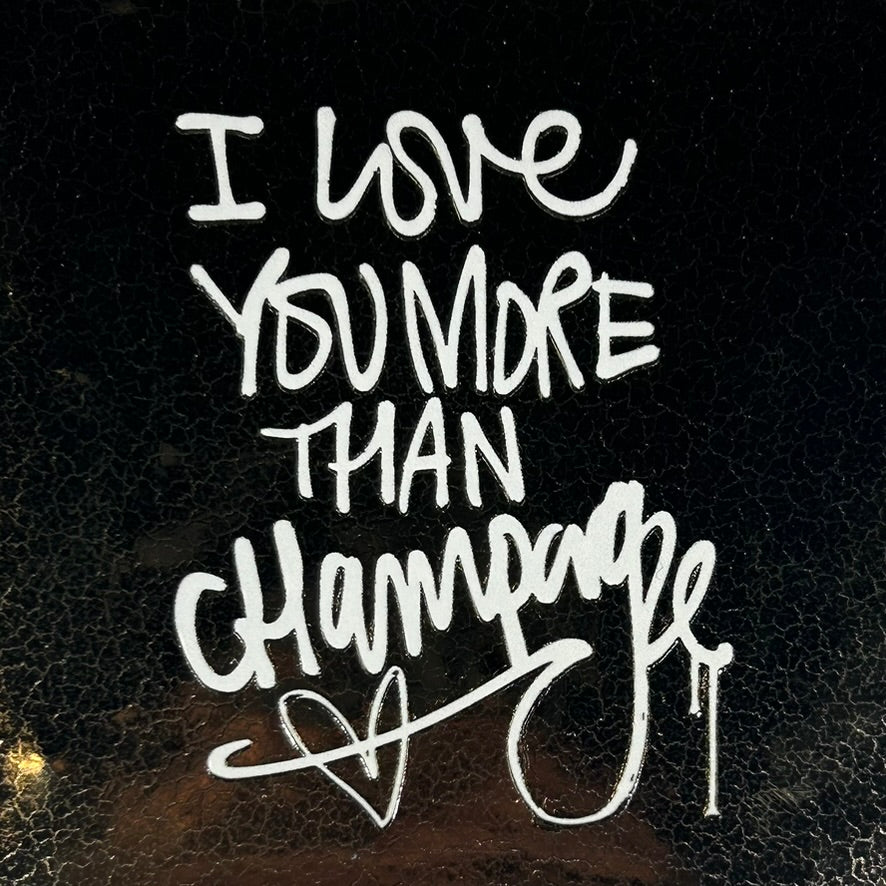 I love
YOU MORE
THAN
CHampagne